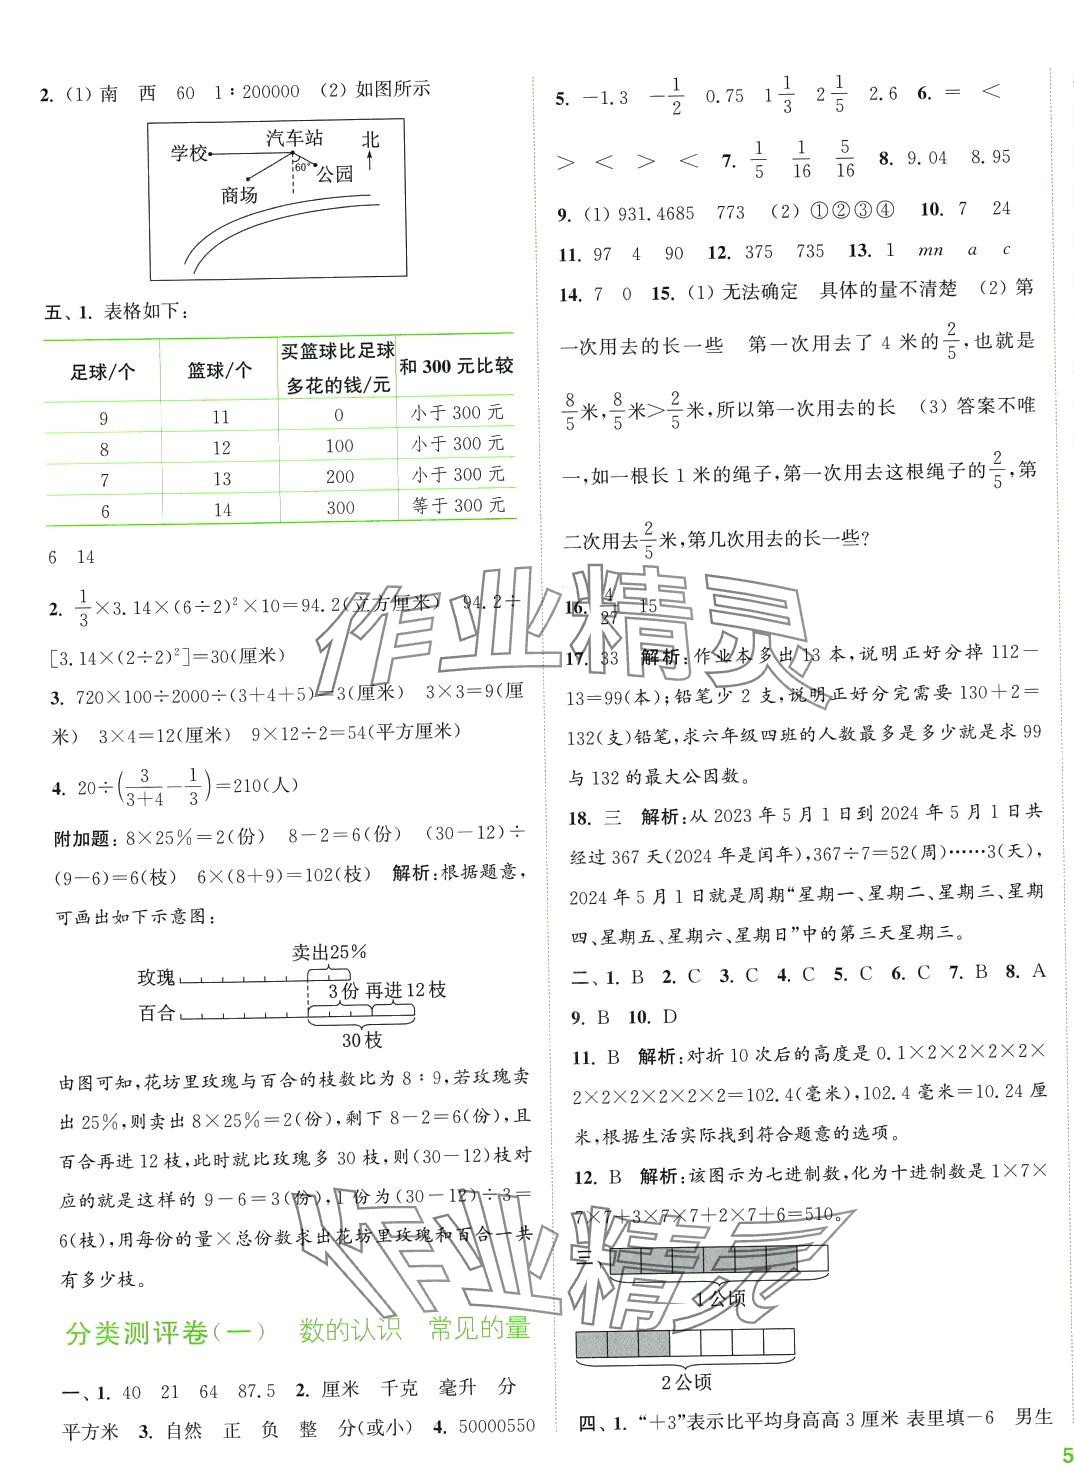 2. (1) 南 西 60 1∶200000 (2) 如图所示
汽车站 北
学校
60° 公园
商场
五、1. 表格如下:
足球/个 篮球/个 买篮球比足球多花的钱/元 和 300 元比较
9 11 0 小于 300 元
8 12 100 小于 300 元
7 13 200 小于 300 元
6 14 300 等于 300 元
6 14
2. 1/3×3.14×(6÷2)²×10=94.2(立方厘米) 94.2÷
[3.14×(2÷2)²]=30(厘米)
3. 720×100÷2000÷(3+4+5)=3(厘米) 3×3=9(厘
米) 3×4=12(厘米) 9×12÷2=54(平方厘米)
4. 20÷(3/(3+4)-1/3)=210(人)
附加题: 8×25%=2(份) 8-2=6(份) (30-12)÷
(9-6)=6(枝) 6×(8+9)=102(枝) 解析:根据题意,
可画出如下示意图:
卖出25%
玫瑰
3份 再进12枝
百合
30枝
由图可知,花坊里玫瑰与百合的枝数比为 8∶9,若玫瑰卖
出 25%,则卖出 8×25%=2(份),剩下 8-2=6(份),且
百合再进 12 枝,此时就比玫瑰多 30 枝,则(30-12)枝对
应的就是这样的 9-6=3(份),1 份为(30-12)÷3=
6(枝),用每份的量×总份数求出花坊里玫瑰和百合一共
有多少枝。
分类测评卷(一) 数的认识 常见的量
一、1. 40 21 64 87.5 2. 厘米 千克 毫升 分
平方米 3. 自然 正 负 整 分(或小) 4. 50000550
5. -1.3 -1/2 0.75 1 1/3 2 1/5 2.6 6. = <
> < > < 7. 1/5 1/16 5/16 8. 9.04 8.95
9. (1) 931.4685 773 (2) ①②③④ 10. 7 24
11. 97 4 90 12. 375 735 13. 1 mn a c
14. 7 0 15. (1) 无法确定 具体的量不清楚 (2) 第
一次用去的长一些 第一次用去了 4 米的2/5,也就是
8/5米,8/5米>2/5米,所以第一次用去的长 (3) 答案不唯
一,如一根长 1 米的绳子,第一次用去这根绳子的2/5,第
二次用去2/5米,第几次用去的长一些?
16. 4/27 15
17. 33 解析:作业本多出 13 本,说明正好分掉 112-
13=99(本);铅笔少 2 支,说明正好分完需要 130+2=
132(支)铅笔,求六年级四班的人数最多是多少就是求 99
与 132 的最大公因数。
18. 三 解析:从 2023 年 5 月 1 日到 2024 年 5 月 1 日共
经过 367 天(2024 年是闰年),367÷7=52(周)……3(天),
2024 年 5 月 1 日就是周期“星期一、星期二、星期三、星期
四、星期五、星期六、星期日”中的第三天星期三。
二、1. B 2. C 3. C 4. C 5. C 6. C 7. B 8. A
9. B 10. D
11. B 解析:对折 10 次后的高度是 0.1×2×2×2×2×
2×2×2×2×2×2=102.4(毫米),102.4 毫米=10.24 厘
米,根据生活实际找到符合题意的选项。
12. B 解析:该图示为七进制数,化为十进制数是 1×7×
7×7+3×7×7+2×7+6=510。
三、
1公顷
2公顷
四、1. “+3”表示比平均身高高 3 厘米 表里填-6 男生
5
作业精灵
作业精灵